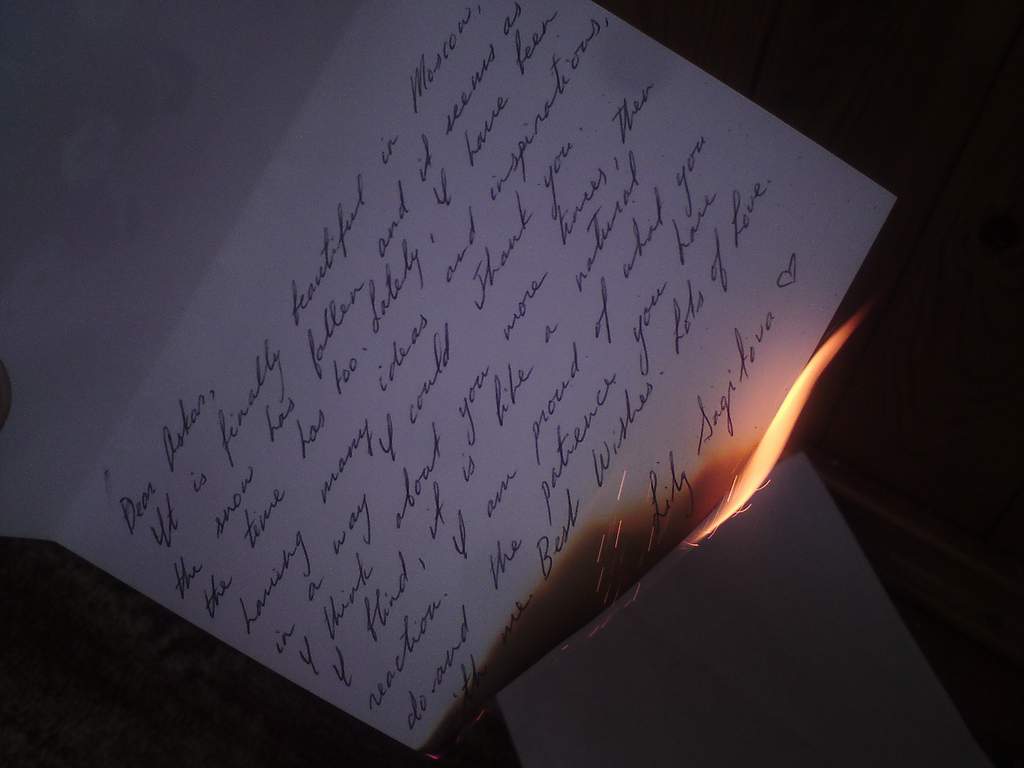 Dear Askar,
It is finally beautiful in Moscow,
the snow has fallen and it seems as
the time has too. Lately, I have been
having many ideas and inspirations,
in a way I could Thank you.
I think about you more times, then
I find, it is like a natural
reaction. I am proud of what you
do and the patience you have
with me. Best Wishes. Lots of Love.
Lily Sagitova ♡